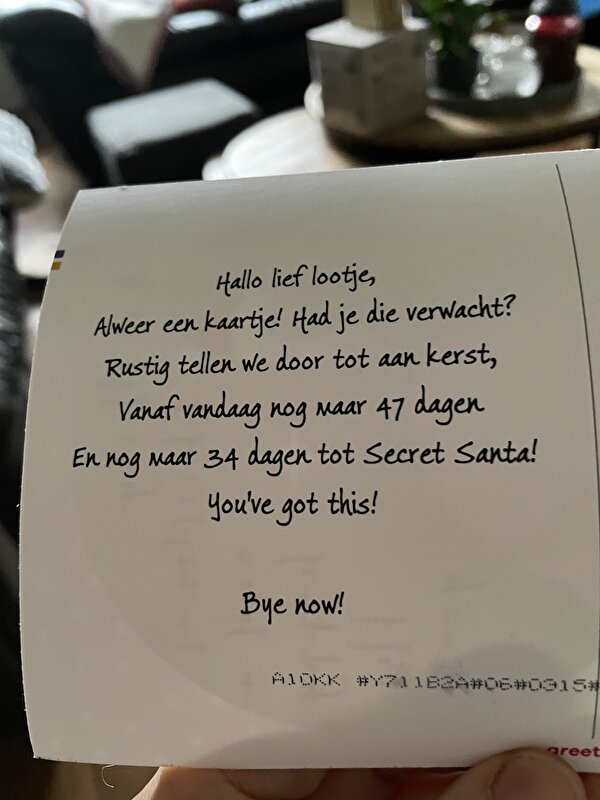 Hallo lief lootje,
Alweer een kaartje! Had je die verwacht?
Rustig tellen we door tot aan kerst,
Vanaf vandaag nog maar 47 dagen
En nog maar 34 dagen tot Secret Santa!
You've got this!
Bye now!
A10KK #Y711B2A#06#0315#
greet